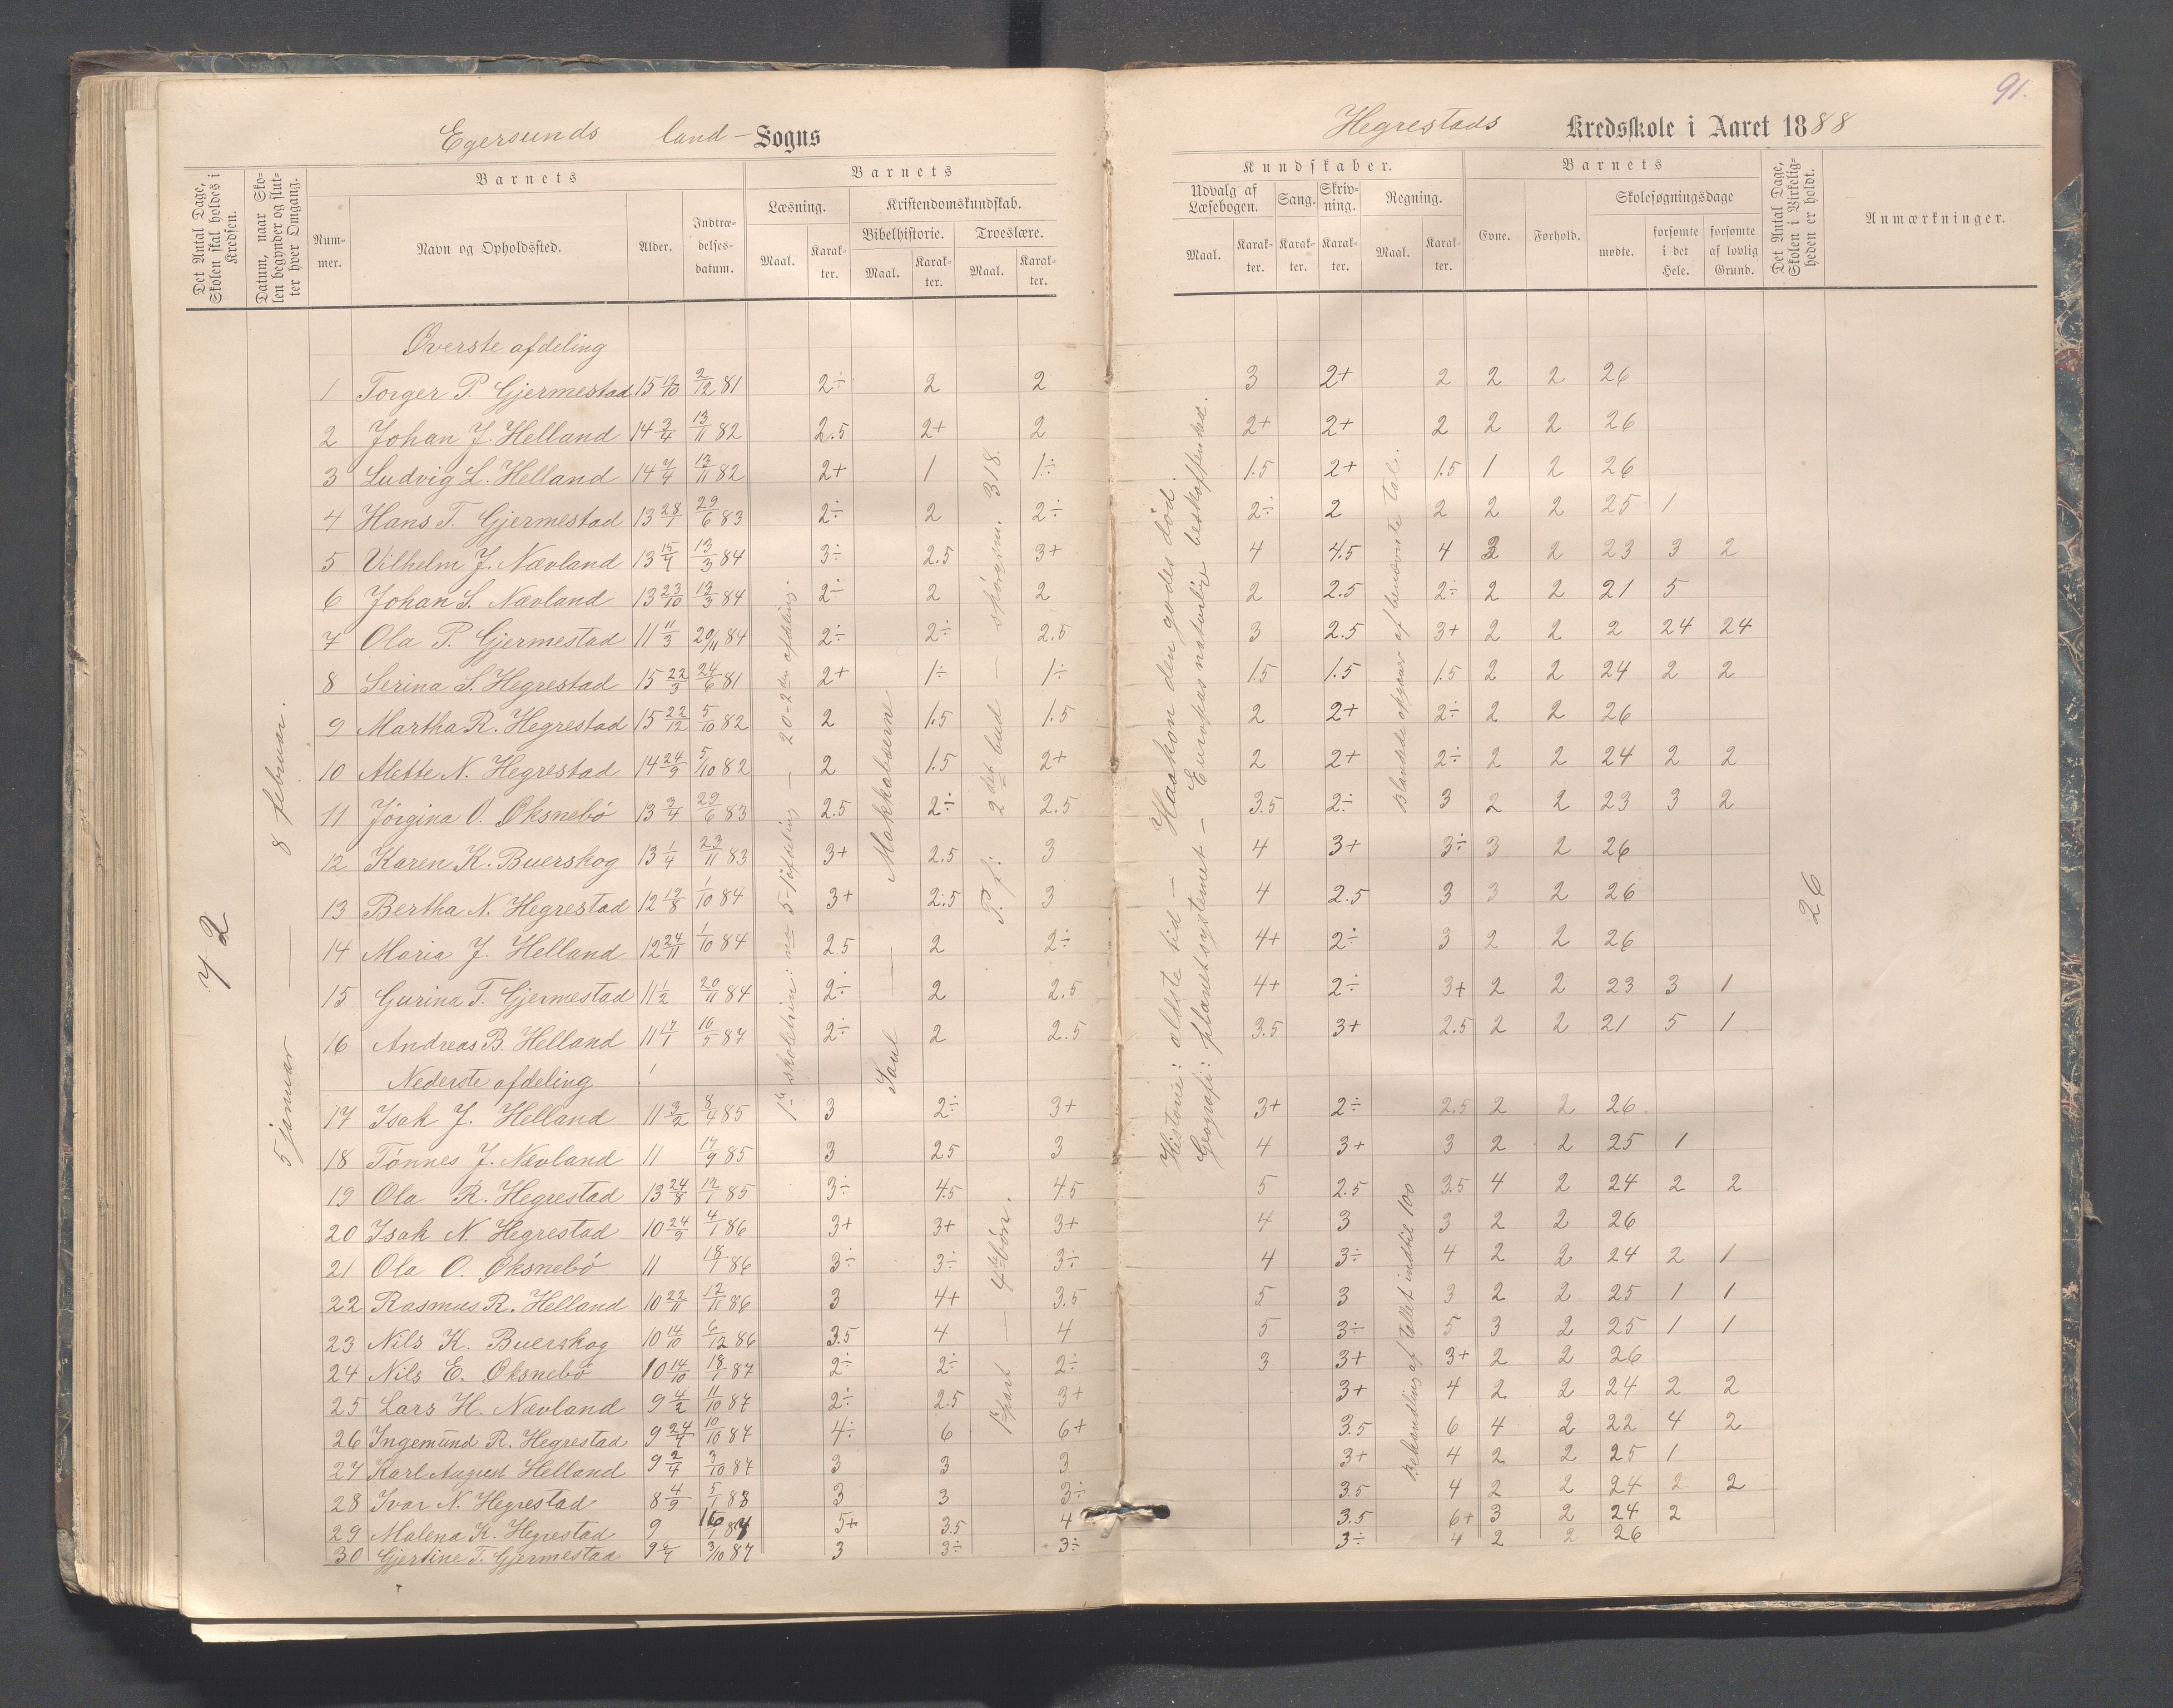 91.
Egersunds land- Sogns
Hegrestads Kredsskole i Aaret 1888
Det Antal Dage, Skolen skal holdes i Kredsen.
Datum, naar Skolen begynder og slutter hver Omgang.
Barnets
Nummer.
Navn og Opholdssted.
Alder.
Indtrædelsesdatum.
Barnets
Læsning.
Maal.
Karakter.
Kristendomskundskab.
Bibelhistorie.
Maal.
Karakter.
Troeslære.
Maal.
Karakter.
Kundskaber.
Udvalg af Læsebogen.
Maal.
Karakter.
Sang.
Karakter.
Skrivning.
Karakter.
Regning.
Maal.
Karakter.
Barnets
Evne.
Forhold.
Skolesøgningsdage
mødte.
forsømte i det Hele.
forsømte af lovlig Grund.
Det Antal Dage, Skolen i Virkeligheden er holdt.
Anmærkninger.
72
5 januar — 8 februar.
Øverste afdeling
1 Torger P. Gjermestad 15 12/10 2/12 81 2÷ 2 2 3 2+ 2 2 2 26
2 Johan J. Helland 14 3/4 13/11 82 2.5 2+ 2 2+ 2+ 2 2 2 26
3 Ludvig L. Helland 14 13/11 82 2+ 1 1÷ 1.5 2+ 1.5 1 2 26
4 Hans T. Gjermestad 13 28/1 29/6 83 2÷ 2 2÷ 2÷ 2 2 2 2 25 1
5 Vilhelm J. Nævland 13 13/3 84 3÷ 2.5 3+ 4 4.5 4 3 2 23 3 2
6 Johan S. Nævland 13 23/10 13/3 84 2÷ 2 2 2 2.5 2÷ 2 2 21 5
7 Ola P. Gjermestad 11 11/3 20/11 84 2÷ 2÷ 2.5 3 2.5 3+ 2 2 2 24 24
8 Serina S. Hegrestad 15 22/3 24/6 81 2+ 1÷ 1÷ 1.5 1.5 1.5 2 2 24 2 2
9 Martha R. Hegrestad 15 22/12 5/10 82 2 1.5 1.5 2 2+ 2÷ 2 2 26
10 Alette N. Hegrestad 14 24/9 5/10 82 2 1.5 2+ 2 2+ 2÷ 2 2 24 2 2
11 Jørgina O. Øksnebø 13 3/4 29/6 83 2.5 2÷ 2.5 3.5 2÷ 3 2 2 23 3 2
12 Karen K. Buerskog 13 1/4 23/11 83 3+ 2.5 3 4 3+ 3÷ 3 2 26
13 Bertha N. Hegrestad 12 1/10 84 3+ 2.5 3 4 2.5 3 3 2 26
14 Maria J. Helland 12 24/11 1/10 84 2.5 2 2÷ 4+ 2÷ 3 2 2 26
15 Gurina T. Gjermestad 11 1/2 20/11 84 2÷ 2 2.5 4+ 2÷ 3+ 2 2 23 3 1
16 Andreas B. Helland 11 16/5 87 2÷ 2 2.5 3.5 3+ 2.5 2 2 21 5 1
Nederste afdeling
17 Isak J. Helland 11 3/2 8/4 85 3 2÷ 3+ 3+ 2÷ 2.5 2 2 26
18 Tønnes J. Nævland 11 17/9 85 3 2.5 3 4 3+ 3 2 2 25 1
19 Ola R. Hegrestad 13 24/8 12/1 85 3÷ 4.5 4.5 5 2.5 3.5 4 2 24 2 2
20 Isak N. Hegrestad 10 24/9 4/1 86 3+ 3+ 3+ 4 3 3 2 2 26
21 Ola O. Øksnebø 11 18/1 86 3÷ 3÷ 3÷ 4 3÷ 4 2 2 24 2 1
22 Rasmus R. Helland 10 22/11 12/11 86 3 4+ 3.5 5 3 3 2 2 25 1 1
23 Nils K. Buerskog 10 14/10 6/12 86 3.5 4 4 5 3÷ 5 3 2 25 1 1
24 Nils E. Øksnebø 10 14/10 18/1 87 2÷ 2÷ 2÷ 3 3+ 3+ 2 2 26
25 Lars H. Nævland 9 4/2 11/10 87 2÷ 2.5 3+ 3+ 4 2 2 24 2 2
26 Ingemund R. Hegrestad 9 10/10 87 4÷ 6 6+ 3.5 6 4 2 22 4 2
27 Karl August Helland 9 2/4 3/10 87 3 3 3 3+ 4 2 2 25 1
28 Ivar N. Hegrestad 8 4/9 5/1 88 3 3 3÷ 3.5 4 2 2 24 2 2
29 Malena K. Hegrestad 9 5+ 3.5 4 3.5 6+ 3 2 24 2
30 Gjertine T. Gjermestad 9 3/10 87 3 3÷ 3÷ 3÷ 4 2 2 26
20-2den afdeling.
Saul — Makkabæerne
2det bud
318.
— 4de bøn.
Historie: ældste tid — Haakon den godes død.
Geografi: planetsystemet — Europas naturlige beskaffenhed.
Blandede opgaver af benævnte tal.
Behandling af tallet indtil 100
26